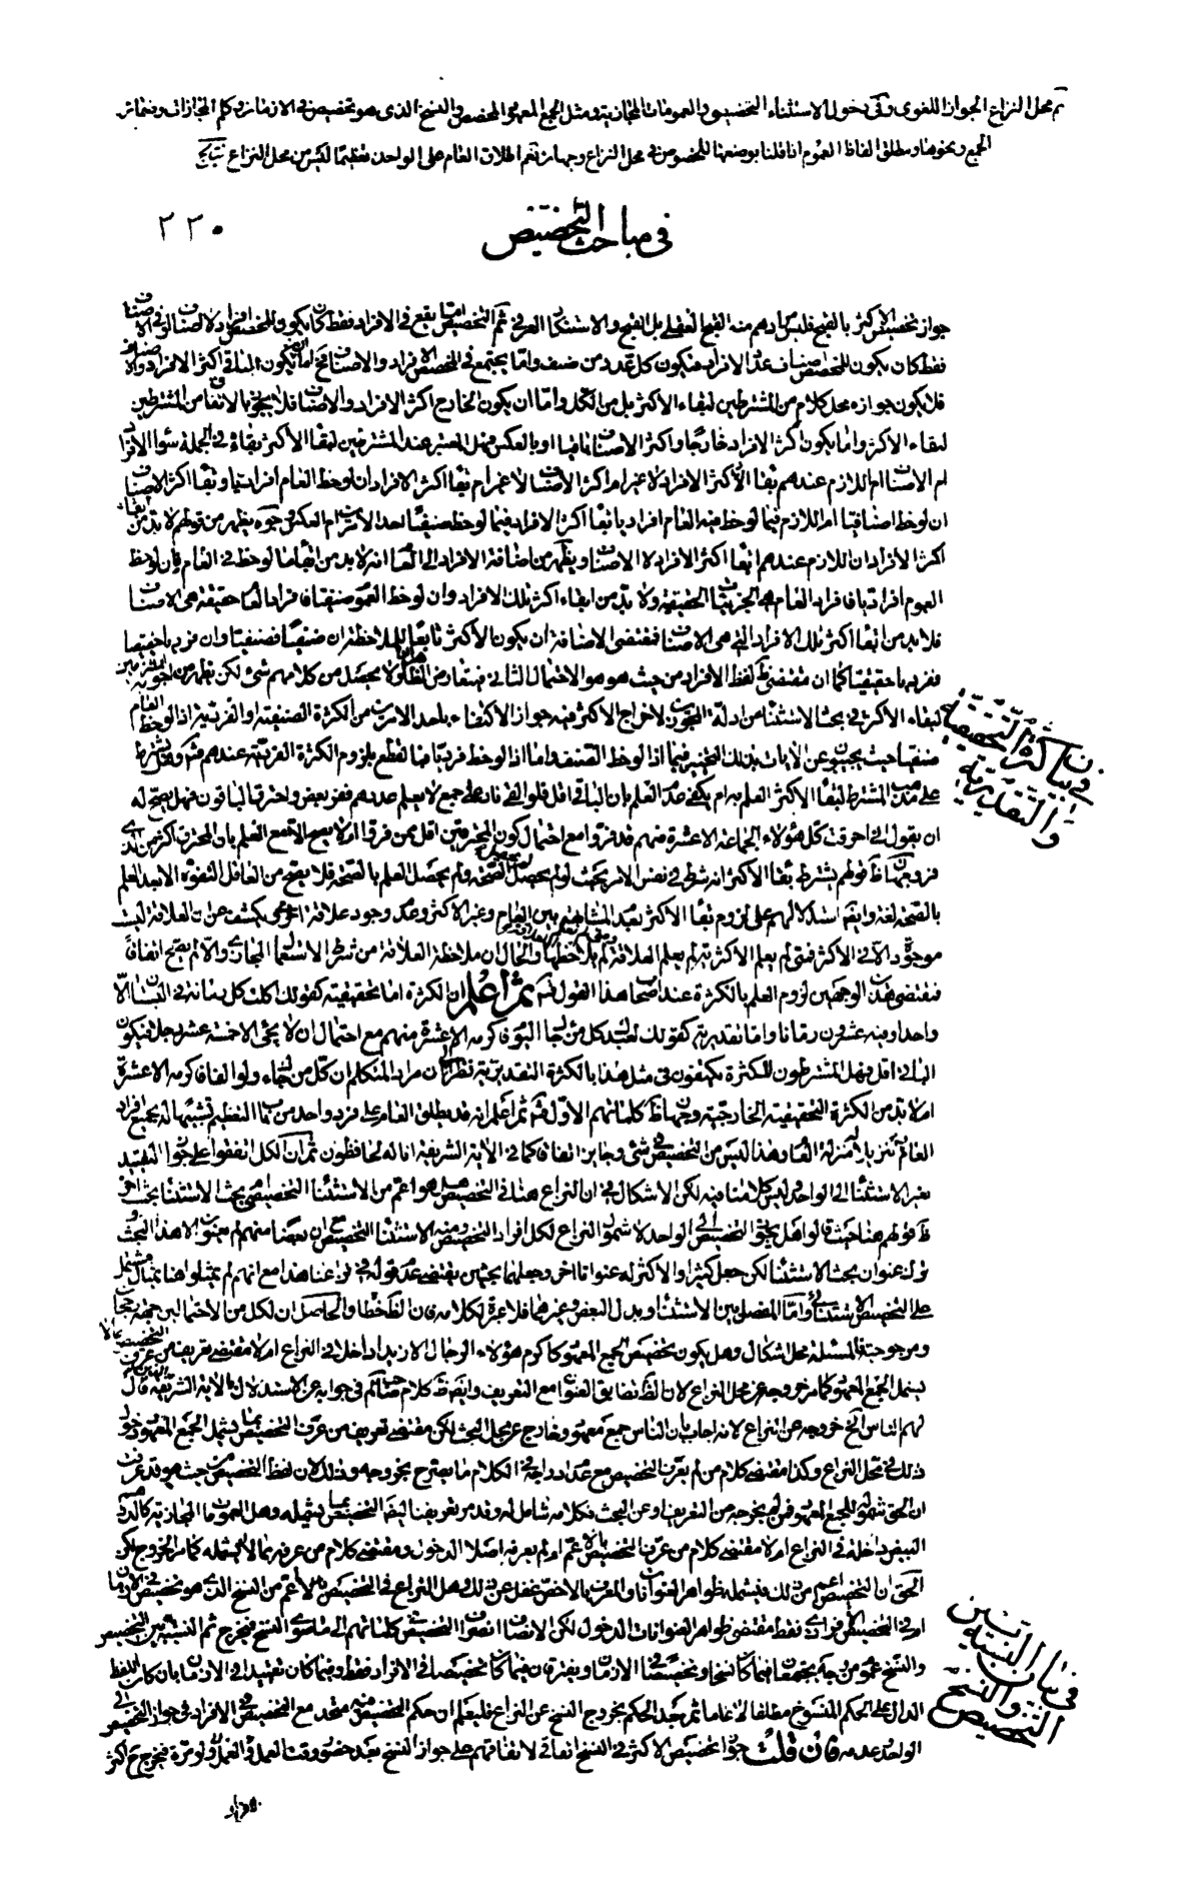 ثم محل النزاع الجواز اللغوى وفى دخول الاستثناء التخصيص والعمومات المجازية ومثل الجمع المعهود المخصص والنسخ الذى هو تخصيص فى الازمان وكلم المجازات وضمائر
الجمع ونحوها ومطلق الفاظ العموم ان قلنا بوضعها للخصوص فى محل النزاع وجهان نعم اطلاق العام على الواحد تعظيمًا ليس من محل النزاع
فى مباحث التخصيص
٢٢٠
جواز تخصيص الاكثر بالقبح فليس مرادهم منه القبح العقلى بل القبح والاستنكار العرفى ثم التخصيص اما يقع فى الافراد فقط كان يكون المخصص افرادًا لا اصناف او فى الاصناف
فقط كان يكون المخصص اصناف عدة الافراد فيكون كل عدد من صنف واما يجتمع فى التخصيص الافراد والاصناف فح اما يكون الباقى اكثر الافراد والاصناف
فلا يكون جوازه محل كلام من المشترطين لبقاء الاكثر بل من الكل واما ان يكون الخارج اكثر الافراد والاصناف فلا يجوز بالاتفاق من المشترطين
لبقاء الاكثر واما يكون اكثر الافراد خارجًا واكثر الاصناف باقيا او بالعكس فهل المعتبر عند المشترطين لبقاء الاكثر بقاءه فى الجملة سواء الافراد
ام الاصناف ام اللازم عندهم بقاء اكثر الافراد لا غير ام اكثر الاصناف لا غير ام بقاء اكثر الافراد ان لوحظ العام افراديا وبقاء اكثر الاصناف
ان لوحظ اصنافيا ام اللازم فيما لوحظ فيه العام افراديا بقاء اكثر الافراد فيما لوحظ صنفيًا احد الامرين ام العكس وجوه يظهر من قولهم لا بد من بقاء
اكثر الافراد ان اللازم عندهم بقاء اكثر الافراد لا الاصناف ويظهر من اضافة الافراد الى العام انه لا بد من ابقاء ما لوحظ فى العام فان لوحظ
العموم افراديا فافراد العام هى الجزئيات الحقيقية ولا بد من ابقاء اكثر تلك الافراد وان لوحظ العموم صنفيا فافراد العام حقيقة هى الاصناف
فلا بد من ابقاء اكثر تلك الافراد التى هى الاصناف فمقتضى الاضافة ان يكون الاكثر تابعًا للملاحظة ان صنفيًا فصنفيا وان فرديا حقيقيا
ففرديا حقيقيا كما ان مقتضى لفظ الافراد من حيث هو هو الاحتمال الثانى ولا يحصل من كلامهم شئ لكن يظهر من اجوبة المشترطين
لبقاء الاكثر فى بحث الاستثناء من ادلة المجوزين لاخراج الاكثر فيه جواز الاكتفاء باحد الامرين من الكثرة الصنفية او الفردية اذا لوحظ العام
صنفيا حيث يجيبون عن الايات بذلك فيما اذا لوحظ الصنف واما اذا لوحظ فرديا فالقطع بلزوم الكثرة الفردية عندهم ثم هل يشترط
على مذهب المشترط لبقاء الاكثر العلم به ام يكفى عدم العلم بان الباقى اقل فلو القى نارا على جمع لا يعلم عددهم ففر بعض واحترق الباقون فهل يصح له
ان يقول انى احرقت كل هؤلاء الجماعة الا عشرة منهم قد فروا مع احتمال كون المحترقين اقل ممن فر ام لا يصح الا مع العلم بان المحترق اكثر من الذى
فر وجهان ظاهر قولهم يشترط بقاء الاكثر انه شرط فى نفس الامر بحيث لولاه لم يحصل الصحة ولم يحصل العلم بالصحة فلا يصح من العاقل التفوه الا بعد العلم
بالصحة لغة وايضا استدلالهم على لزوم بقاء الاكثر بعدم المشابهة بين العام وغير الاكثر وعدم وجود علاقة اخرى يكشف عن ان العلاقة ليست
موجودة الا فى الاكثر فمتى لم يعلم الاكثرية لم يعلم العلاقة ولم يلاحظها والحال ان ملاحظة العلاقة من شرط الاستعمال المجازى والا لم يصح اتفاقًا
فمقتضى هذين الوجهين لزوم العلم بالكثرة عند اصحاب هذا القول فتم ثم اعلم ان الكثرة اما تحقيقية كقولك اكلت كل رمانة فى البستان الا
واحدا وفيه عشرون رمانا واما تقديرية كقولك لعبدك كل من جاء اليوم فاكرمه الا عشرة منهم مع احتمال ان لا يجئ الا خمسة عشر رجلا فيكون
الباقى اقل فهل المشترطون للكثرة يكتفون فى مثل هذا بالكثرة التقديرية نظرًا الى ان مراد المتكلم ان كل من جاء ولو الفا فاكرمه الا عشرة
ام لا بد من الكثرة التحقيقية الخارجية وجهان ظاهر كلماتهم الاول فتم ثم اعلم انه قد يطلق العام على فرد واحد من باب التعظيم تشبيهًا له بجميع افراد
العام تنزيلا منزلة العام وهذا ليس من التخصيص فى شئ وجايز اتفاقا كما فى الاية الشريفة انا له لحافظون ثم ان الكل اتفقوا على جواز التقييد
بغير الاستثناء الى الواحد وليس كلامنا فيه لكن الاشكال فى ان النزاع هنا فى التخصيص هل هو اعم من الاستثناء التخصيصى وبحث الاستثناء بحث اخر
ظاهر قولهم هنا حيث قالوا هل يجوز التخصيص الى الواحد ام لا شمول النزاع لكل افراد التخصيص ومنه الاستثناء التخصيصى مع ان بعضا منهم لم يعنون الا هذا البحث و
ترك عنوان بحث الاستثناء لكن جعل كثير استثناء الاكثر له عنوانا اخر وجعلهما بحثين يقتضى عدم دخوله فى نزاعنا هذا مع انهم لم يمثلوا هنا بمثال مشتمل
على التخصيص الاستثنائى واما المفصل بين الاستثناء وبدل البعض وغيرهما فلا عبرة لكلامه فان الظ خطأ والحاصل ان لكل من الاحتمالين جهة رجحان
ومرجوحية فالمسئلة محل اشكال وهل يكون تخصيص الجمع المعهود كاكرم هؤلاء الرجال الا زيدا داخلا فى النزاع ام لا مقتضى تعريف من عرف التخصيص بما لا
يشمل الجمع المعهود كما مر خروجه عن محل النزاع لان الظ تطابق العنوان مع التعريف وايضا ظ كلام صاحب لم فى جوابه عن الاستدلال بالاية الشريفة قال
لهم الناس الخ خروجه عن النزاع لانه اجاب بان الناس جمع معهود وخارج عن محل البحث لكن مقتضى تعريف من عرف التخصيص بما يشمل الجمع المعهود دخول
ذلك فى محل النزاع وكذا مقتضى كلام من لم يعرف التخصيص مع عدم ادراجه فى الكلام ما يصرح بخروجه وذلك لان لفظ التخصيص من حيث هو قد عرفت
ان الحق شموله للجمع المعهود فمن لم يخرجه من التعريف او عن البحث فكلامه شامل له وقد مر تعريفنا ايضا التخصيص بما يشمله وهل العموم المجازية كالدرهم
البيض داخلة فى النزاع ام لا مقتضى كلام من عرف التخصيص بالاعم او لم يعرفه اصلا الدخول ومقتضى كلام من عرفه بما لا يشمله كما مر الخروج لكن
الحق ان التخصيص اعم من ذلك فيشمله ظواهر العنوانات والمعرف بالاخص غفل عن ذلك وهل النزاع فى التخصيص بالاعم من النسخ الذى هو تخصيص فى الازمان
ام فى التخصيص الافرادى فقط مقتضى ظواهر العنوانات الدخول لكن الانصاف انصراف التخصيص فى كلماتهم الى ما سوى النسخ فيخرج ثم النسبة بين التخصيص
والنسخ عموم من وجه يجتمعان فيما كان نسخا وتخصيصًا فى الازمان ويفترقان فيما كان تخصيصا فى الافراد فقط وفيما كان تقييدا فى الازمان بان كان اللفظ
الدال على الحكم المنسوخ مطلقا لا عاما ثم بعد الحكم بخروج النسخ عن النزاع فليعلم ان حكم التخصيص فيه متحد مع التخصيص فى الافراد فى جواز التخصيص الى
الواحد وعدمه فان قلت جواز تخصيص الاكثر فى النسخ اتفاقى لاتفاقهم على جواز النسخ بعد حضور وقت العمل والعمل ولو مرة فيخرج ح اكثر
فى بيان كثرة التحقيقية
والتقديرية
فى بيان النسبة بين
التخصيص والنسخ